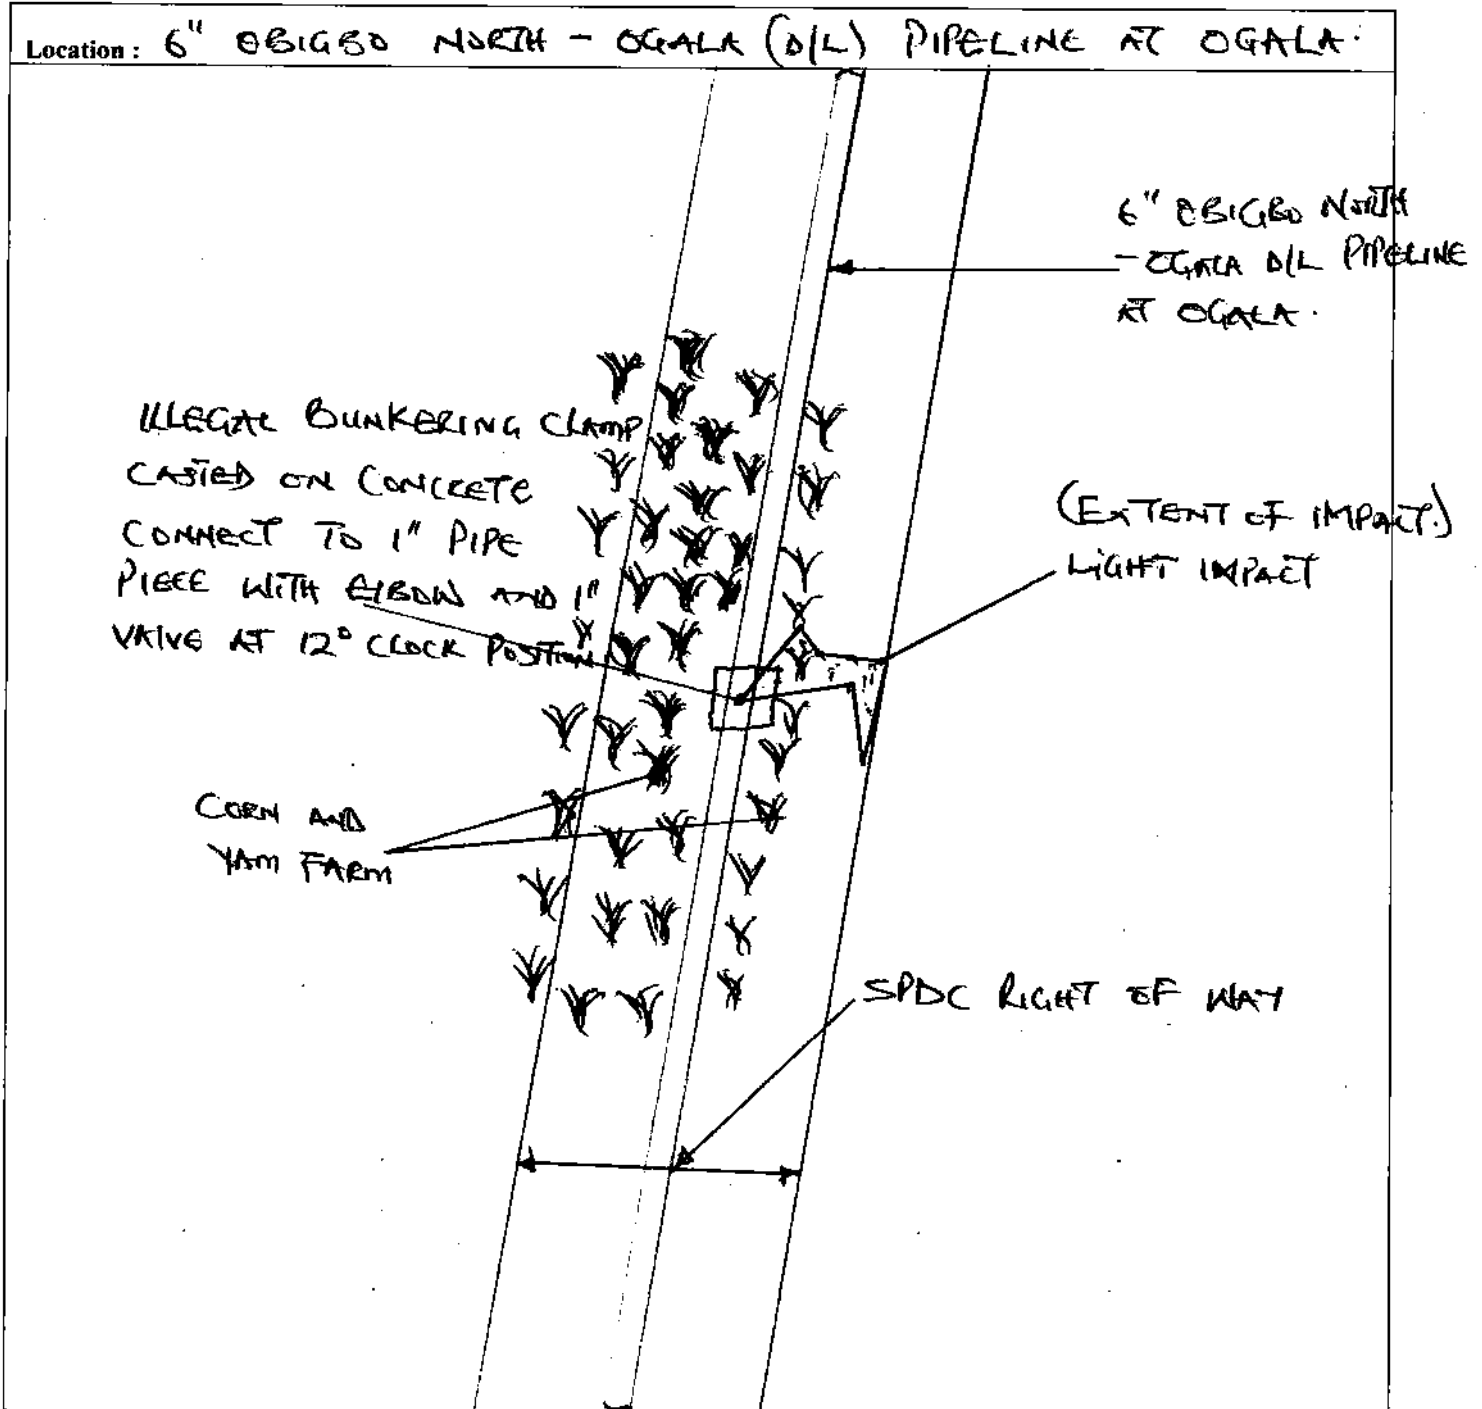 Location : 6" OBIGBO NORTH - OGALA (D/L) PIPELINE AT OGALA.
6" OBIGBO NORTH
- OGALA D/L PIPELINE
AT OGALA.
ILLEGAL BUNKERING CLAMP
CASTED ON CONCRETE
CONNECT TO 1" PIPE
PIECE WITH ELBOW AND 1"
VALVE AT 12° CLOCK POSITION
(EXTENT OF IMPACT.)
LIGHT IMPACT
CORN AND
YAM FARM
SPDC RIGHT OF WAY